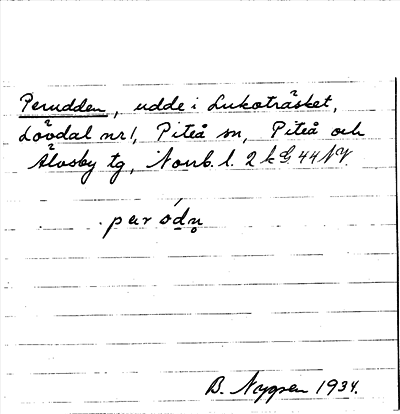 Perudden, udde i Lukoträsket,
Lövdal nr 1, Piteå sn, Piteå och
Älvsby tg, Norrb. l. 2 k G 44 NV.
per ódn̥
B. Nygren 1934.